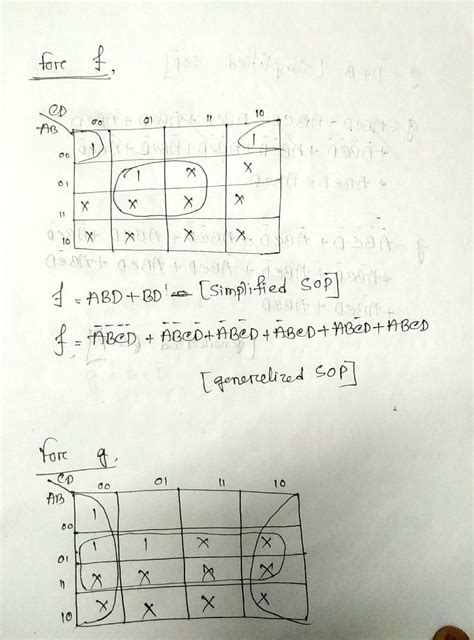 fore f,
CD
AB 00 01 11 10
00 1 1
01 1 X X
11 X X X X
10 X X X X
f = ABD + BD [Simplified SOP]
f = A̅B̅C̅D̅ + A̅B̅CD̅ + A̅BC̅D + ABC̅D + A̅BCD + ABCD
[generelized SOP]
fore g,
CD
AB 00 01 11 10
00 1
01 1 1 X X
11 X X X X
10 X X X X